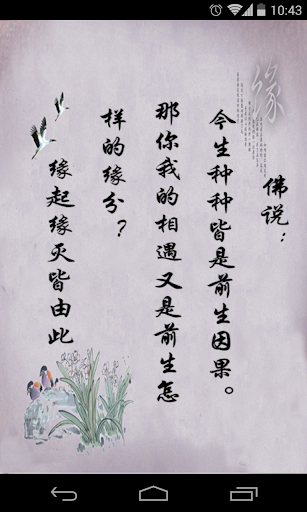 10:43
缘
佛说：
今生种种皆是前生因果。
那你我的相遇又是前生怎
样的缘分？
缘起缘灭皆由此